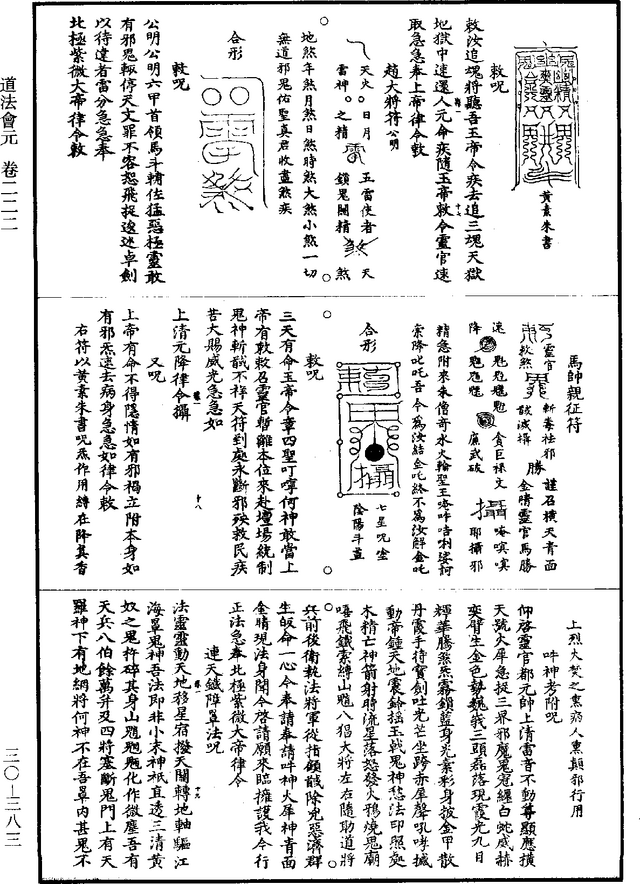 道法會元　卷二二二
三〇—三八三
黃素朱書
敕呪
敕汝追塊將聽吾玉帝令疾去追三塊天獄
地獄中速還人元命疾隨玉帝敕令靈官速
取急急奉上帝律令敕
趙大將符公明
天火。日月　玉雷使者　天
雷神。之精　鎖鬼開精　煞
地煞年煞月煞日煞時煞大煞小煞一切
無道邪鬼佑聖真君收盡煞疾
合形
敕呪
公明公明六甲首領馬斗輔佐猛惡極靈敢
有邪鬼輙停天文罪不容恕飛捉逡巡卓劍
以待違者雷分急急奉
北極紫微大帝律令敕
馬帥親征符
靈官　斬毒祛邪　謹召橫天青面
敕煞　鼠　誠滅攝　勝　金睛靈官馬勝
速　魁𩲃魓魁　貪巨祿文　唵嗔嗔
降　魁𩲃魓　廉武破　攝　耶攝邪
精急附來未僧奇水火輪聖王唵吽唁唎娑訶
宗降叱吒吾　今為汝結仝吒終不為汝解仝吒
合形
七星呪塗
陰陽斗蓋
敕呪
三天有命玉帝令章四聖叮嚀何神敢當上
帝有敕敕召靈官暫離本位來赴壇場統制
鬼神斬馘不祥天符到處永斷邪殃救民疾
苦大賜威光急急如
上清元降律令攝
又呪
上帝有命不得隱情如有邪禍立附本身如
有邪鬼速去病身急急如律令敕
右符以黃素朱書呪炁作用縛在降真香
十八
上烈火焚之熏病人熏顛邪行用
吽神考附呪
仰啓靈官都元帥上清雷音不動尊顯應橫
天號火犀急捉三界邪魔鬼冤纏白蛇威赫
奕臂生金色勢巍峩三頭磊落現霞光九日
輝華騰煞炁霧鎖藍身光紊彩身披金甲散
丹霞手待寶劍吐光芒坐跨赤犀聲吼哮撼
動帝鍾天地震鈴搖玉戟鬼神愁法印照奕
木精亡神箭射時流星落怒發火鴉燒鬼廟
嘻飛鐵索縛山魈八猖大將左右隨助道將
兵前後衛執法將軍從指顧馘除兇惡濟群
生皈命一心今奉請奉請吽神火犀神青面
金睛現法身聞今啓請願來臨擁護我今行
正法急奉北極紫微大帝律令
連天鐵障罩法呪
法靈靈動天地移星宿撥天關轉地軸驅江
海罩鬼神吾法即非小衣神祇直透三清黃
奴之鬼杵碎其身山魈魍魎化作微塵吾有
天兵八伯餘萬并及四將塞斷鬼門上有天
羅神下有地網將何神不在吾罩內甚鬼不